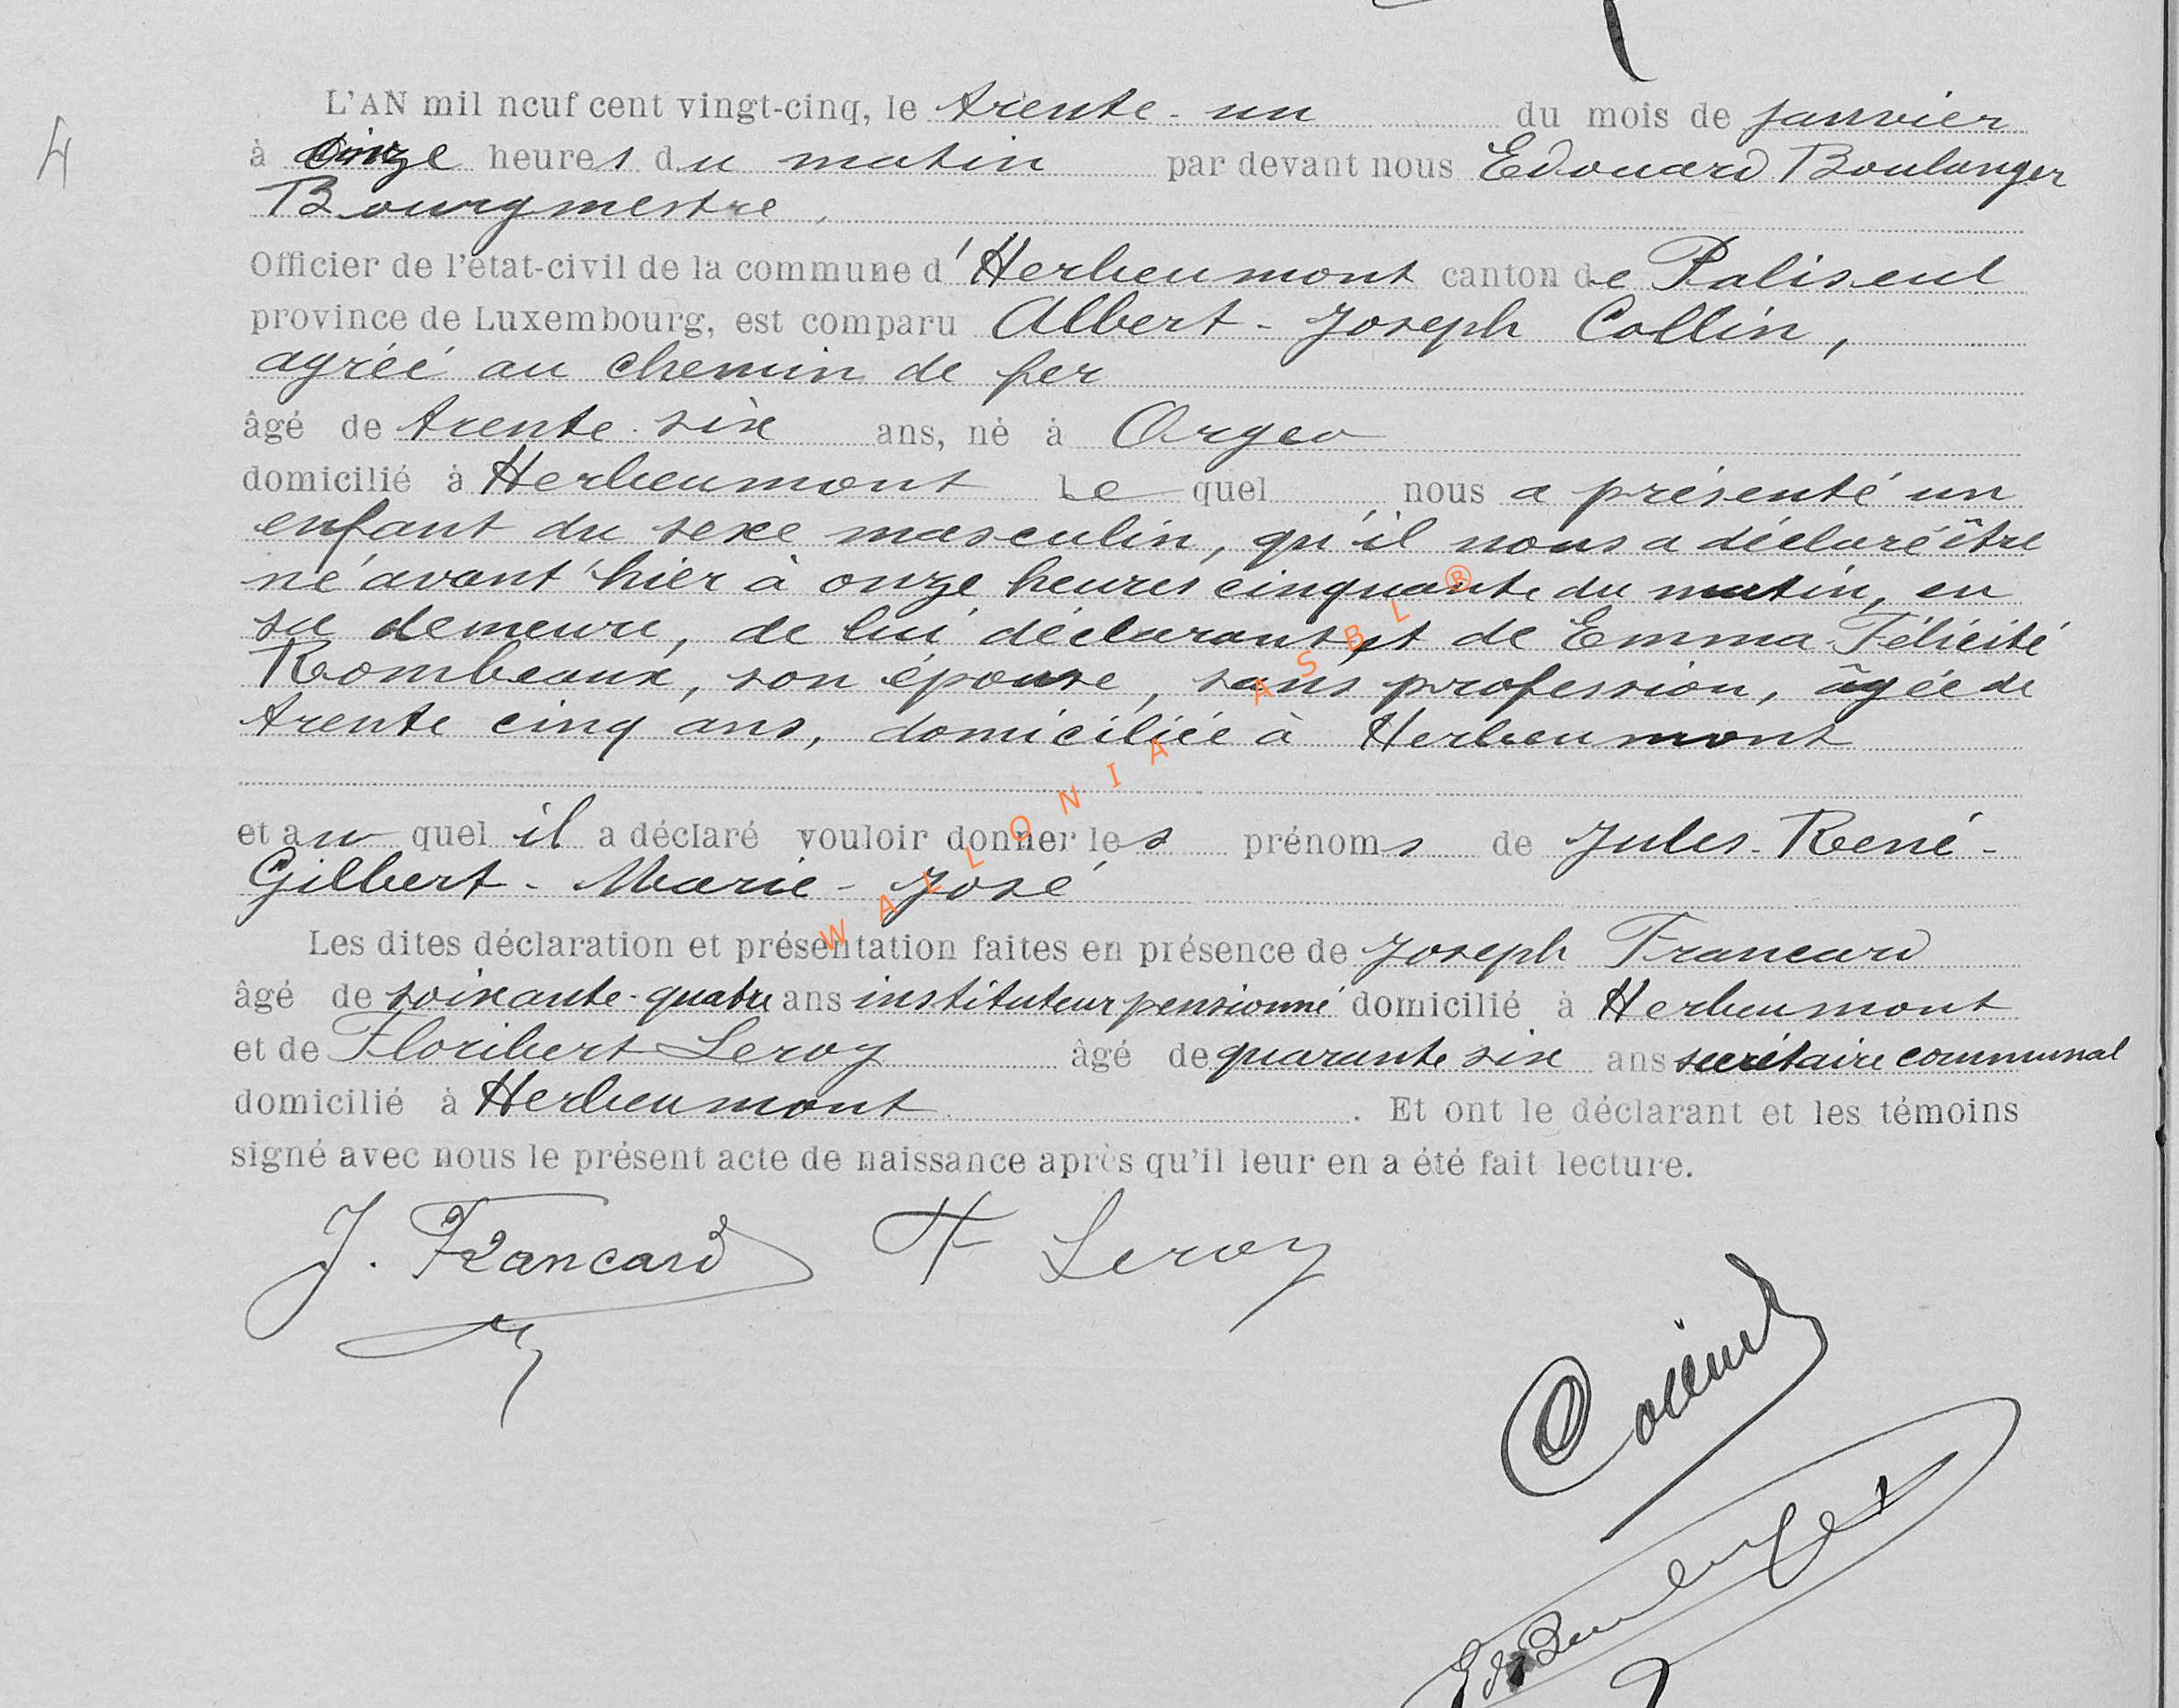 L'AN mil neuf cent vingt-cinq, le trente-un du mois de janvier
4
à onze heures du matin par devant nous Edouard Boulanger
Bourgmestre,
Officier de l'état-civil de la commune d'Herbeumont canton de Paliseul
province de Luxembourg, est comparu Albert-Joseph Collin,
agréé au chemin de fer
âgé de trente-six ans, né à Orgeo
domicilié à Herbeumont Lequel nous a présenté un
enfant du sexe masculin, qu'il nous a déclaré être
né avant'hier à onze heures cinquante du matin, en
sa demeure, de lui déclarant et de Emma-Félicité
Rombeaux, son épouse, sans profession, âgée de
trente cinq ans, domiciliée à Herbeumont
et auquel il a déclaré vouloir donner les prénoms de Jules-René-
Gilbert-Marie-José
Les dites déclaration et présentation faites en présence de Joseph Francard
âgé de soixante-quatre ans instituteur pensionné domicilié à Herbeumont
et de Floribert Leroy âgé de quarante six ans secrétaire communal
domicilié à Herbeumont. Et ont le déclarant et les témoins
signé avec nous le présent acte de naissance après qu'il leur en a été fait lecture.
J. Francard F Leroy
Collin
Ed Boulanger
WALLONIA ASBL ®